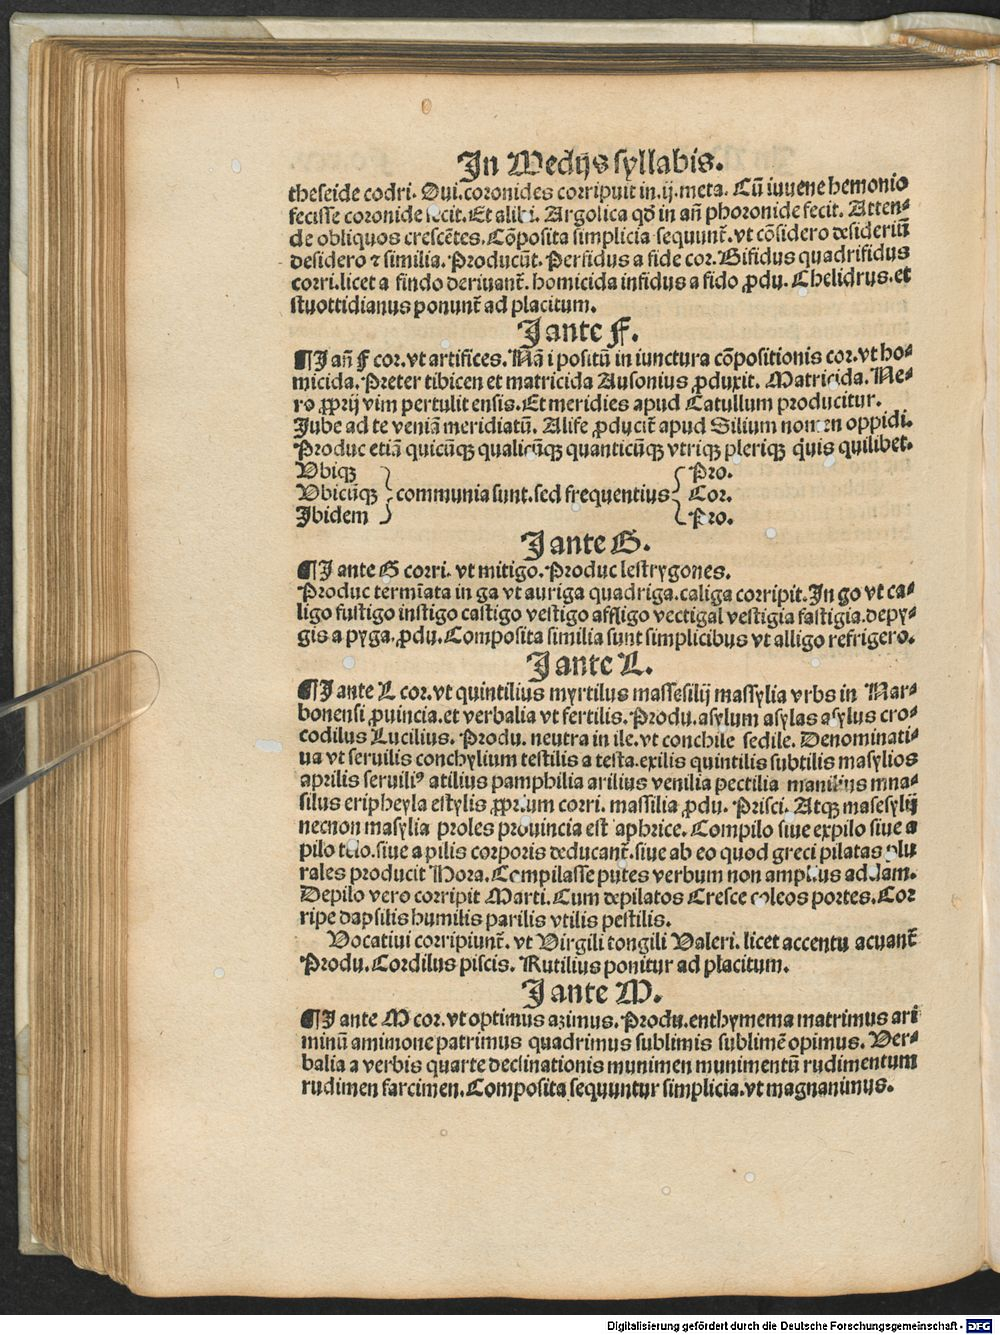 In Medijs syllabis.
theseide codri. Oui. coronides corripuit in .ij. meta. Cū iuuene hemonio
fecisse coronide fecit. Et alibi. Argolica qđ in añ phoronide fecit. Atten-
de obliquos crescētes. Cōposita simplicia sequunt̄. vt cōsidero desideriū
desidero ⁊ similia. Producūt. Persidus a fide cor. Bifidus quadrifidus
corri. licet a findo deriuant̄. homicida infidus a fido ꝓdu. Chelidrus. et
stuottidianus ponunt̄ ad placitum.
I ante F.
¶I añ F cor. vt artifices. Nā i positū in iunctura cōpositionis cor. vt ho-
micida. Preter tibicen et matricida Ausonius ꝓduxit. Matricida. Ne-
ro ꝓprij vim pertulit ensis. Et meridies apud Catullum producitur.
Iube ad te veniā meridiatū. Alife ꝓducit̄ apud Silium nomen oppidi.
Produc etiā quicūqꝫ qualicūqꝫ quanticūqꝫ vtriqꝫ pleriqꝫ quis quilibet.
Vbiqꝫ Pro.
Vbicūqꝫ communia sunt. sed frequentius Cor.
Ibidem Pro.
I ante G.
¶I ante G corri. vt mitigo. Produc lestrygones.
Produc termīata in ga vt auriga quadriga. caliga corripit. In go vt ca-
ligo fustigo instigo castigo vestigo affligo vectigal vestigia fastigia. depy-
gis a pyga. ꝓdu. Composita similia sunt simplicibus vt alligo refrigero.
I ante L.
¶I ante L cor. vt quintilius myrtilus massesilij massylia vrbs in Nar-
bonensi ꝓuincia. et verbalia vt fertilis. Produ. asylum asylas asylus cro-
codilus Lucilius. Produ. neutra in ile. vt conchile sedile. Denominati-
ua vt seruilis conchylium testilis a testa. exilis quintilis subtilis masylios
aprilis seruiliꝰ atilius pamphilia arilius venilia pectilia manilius mna-
silus eripheyla estylis ꝓprium corri. massilia ꝓdu. Prisci. Atqꝫ masesylij
necnon masylia proles prouincia est aphrice. Compilo siue expilo siue a
pilo telo. siue a pilis corporis deducant̄. siue ab eo quod greci pilatas plu
rales producit Hora. Compilasse putes verbum non amplius addam.
Depilo vero corripit Marti. Cum depilatos Cresce coleos portes. Cor
ripe dapsilis humilis parilis vtilis pestilis.
Vocatiui corripiunt̄. vt Virgili tongili Valeri. licet accentu acuant̄
Produ. Cordilus piscis. Rutilius ponitur ad placitum.
I ante M.
¶I ante M cor. vt optimus azimus. Produ. enthymema matrimus ari
minū amimone patrimus quadrimus sublimis sublimē opimus. Ver-
balia a verbis quarte declinationis munimen munimentū rudimentum
rudimen farcimen. Composita sequuntur simplicia. vt magnanimus.
Digitalisierung gefördert durch die Deutsche Forschungsgemeinschaft - DFG